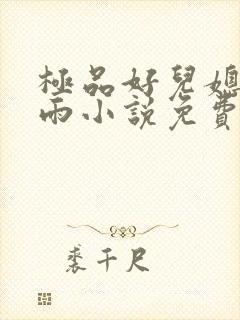 極品好兒媳
雨小說免費
裘千尺